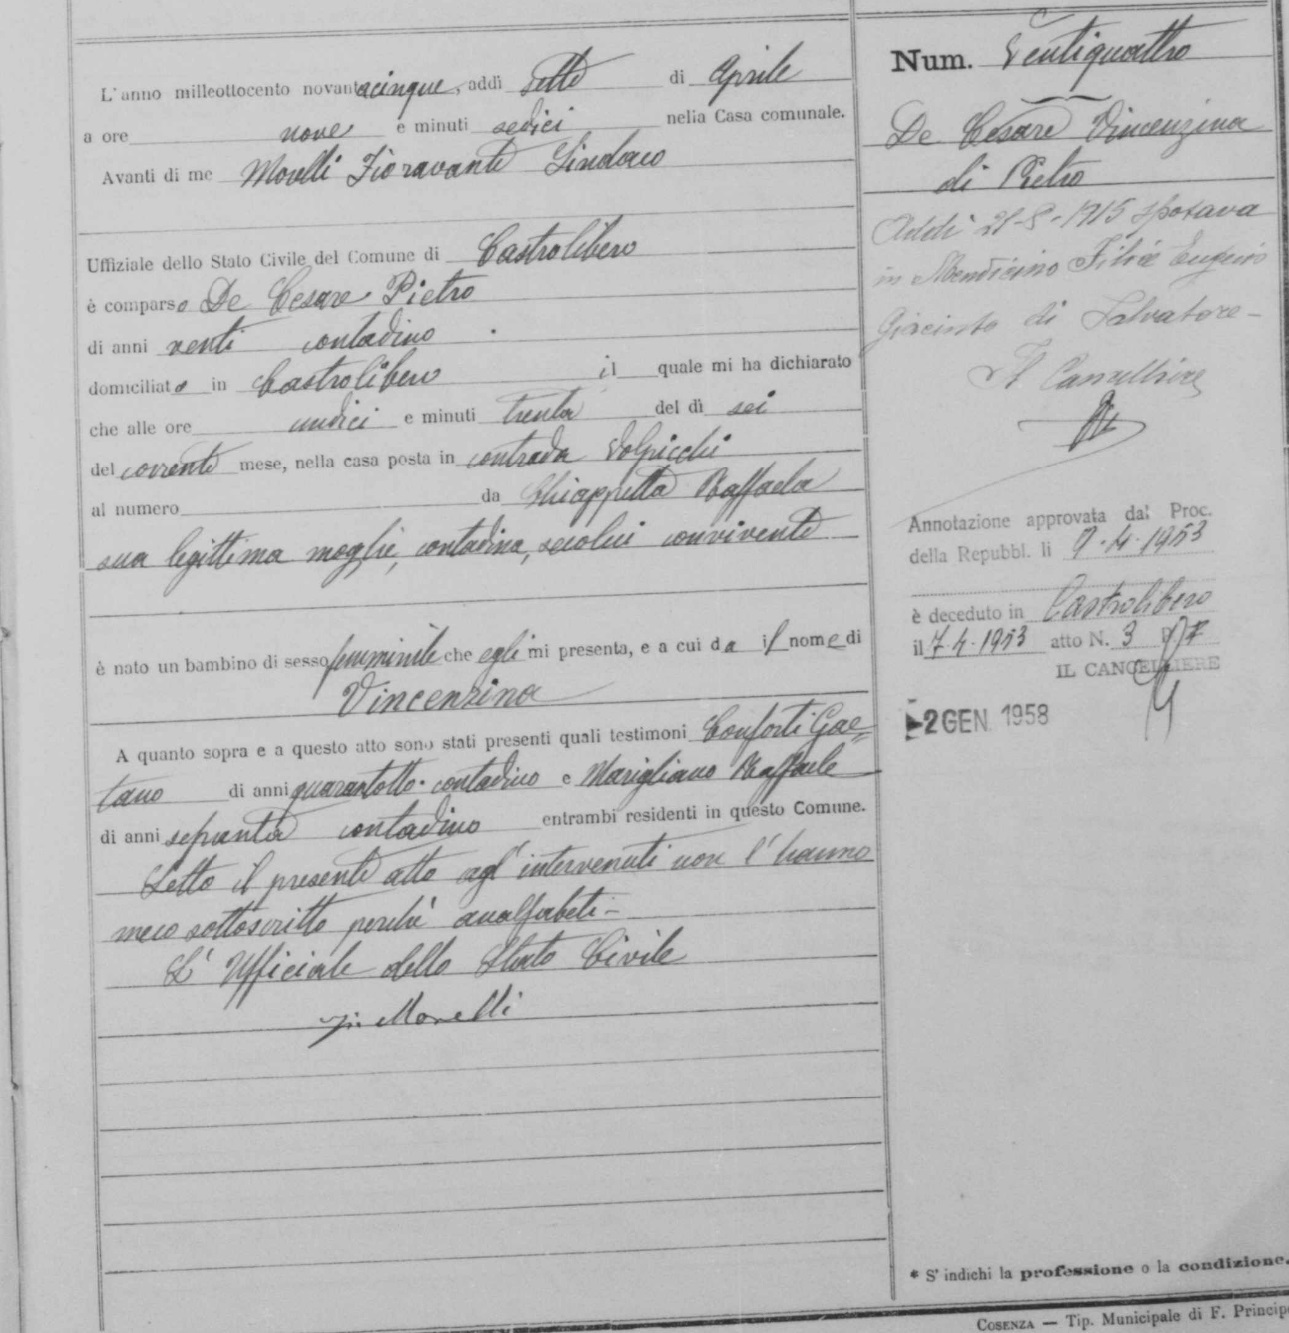 L'anno milleottocento novantacinque, addì sette di Aprile
a ore nove e minuti sedici nella Casa comunale.
Avanti di me Morelli Fioravante Sindaco
Uffiziale dello Stato Civile del Comune di Castrolibero
è comparso De Cesare Pietro
di anni venti contadino
domiciliato in Castrolibero il quale mi ha dichiarato
che alle ore undici e minuti trenta del dì sei
del corrente mese, nella casa posta in contrada Volpicchi
al numero da Chiappetta Raffaela
sua legittima moglie, contadina, secolui convivente
è nato un bambino di sesso femminile che egli mi presenta, e a cui da il nome di
Vincenzina
A quanto sopra e a questo atto sono stati presenti quali testimoni Conforti Gae=
tano di anni quarantotto contadino e Marigliano Raffaele
di anni sessanta contadino entrambi residenti in questo Comune.
Letto il presente atto agl'intervenuti non l'hanno
meco sottoscritto perché analfabeti -
L'Ufficiale dello Stato Civile
Morelli
Num. Ventiquattro
De Cesare Vincenzina
di Pietro
Addì 21-8-1915 sposava
in Mendicino Filice Eugenio
Giacinto di Salvatore -
Il Cancelliere
Annotazione approvata dal Proc.
della Repubbl. lì 9.4.1953
è deceduto in Castrolibero
il 7.4.1953 atto N. 3
IL CANCELLIERE
-2 GEN 1958
* S'indichi la professione o la condizione.
COSENZA — Tip. Municipale di F. Principe